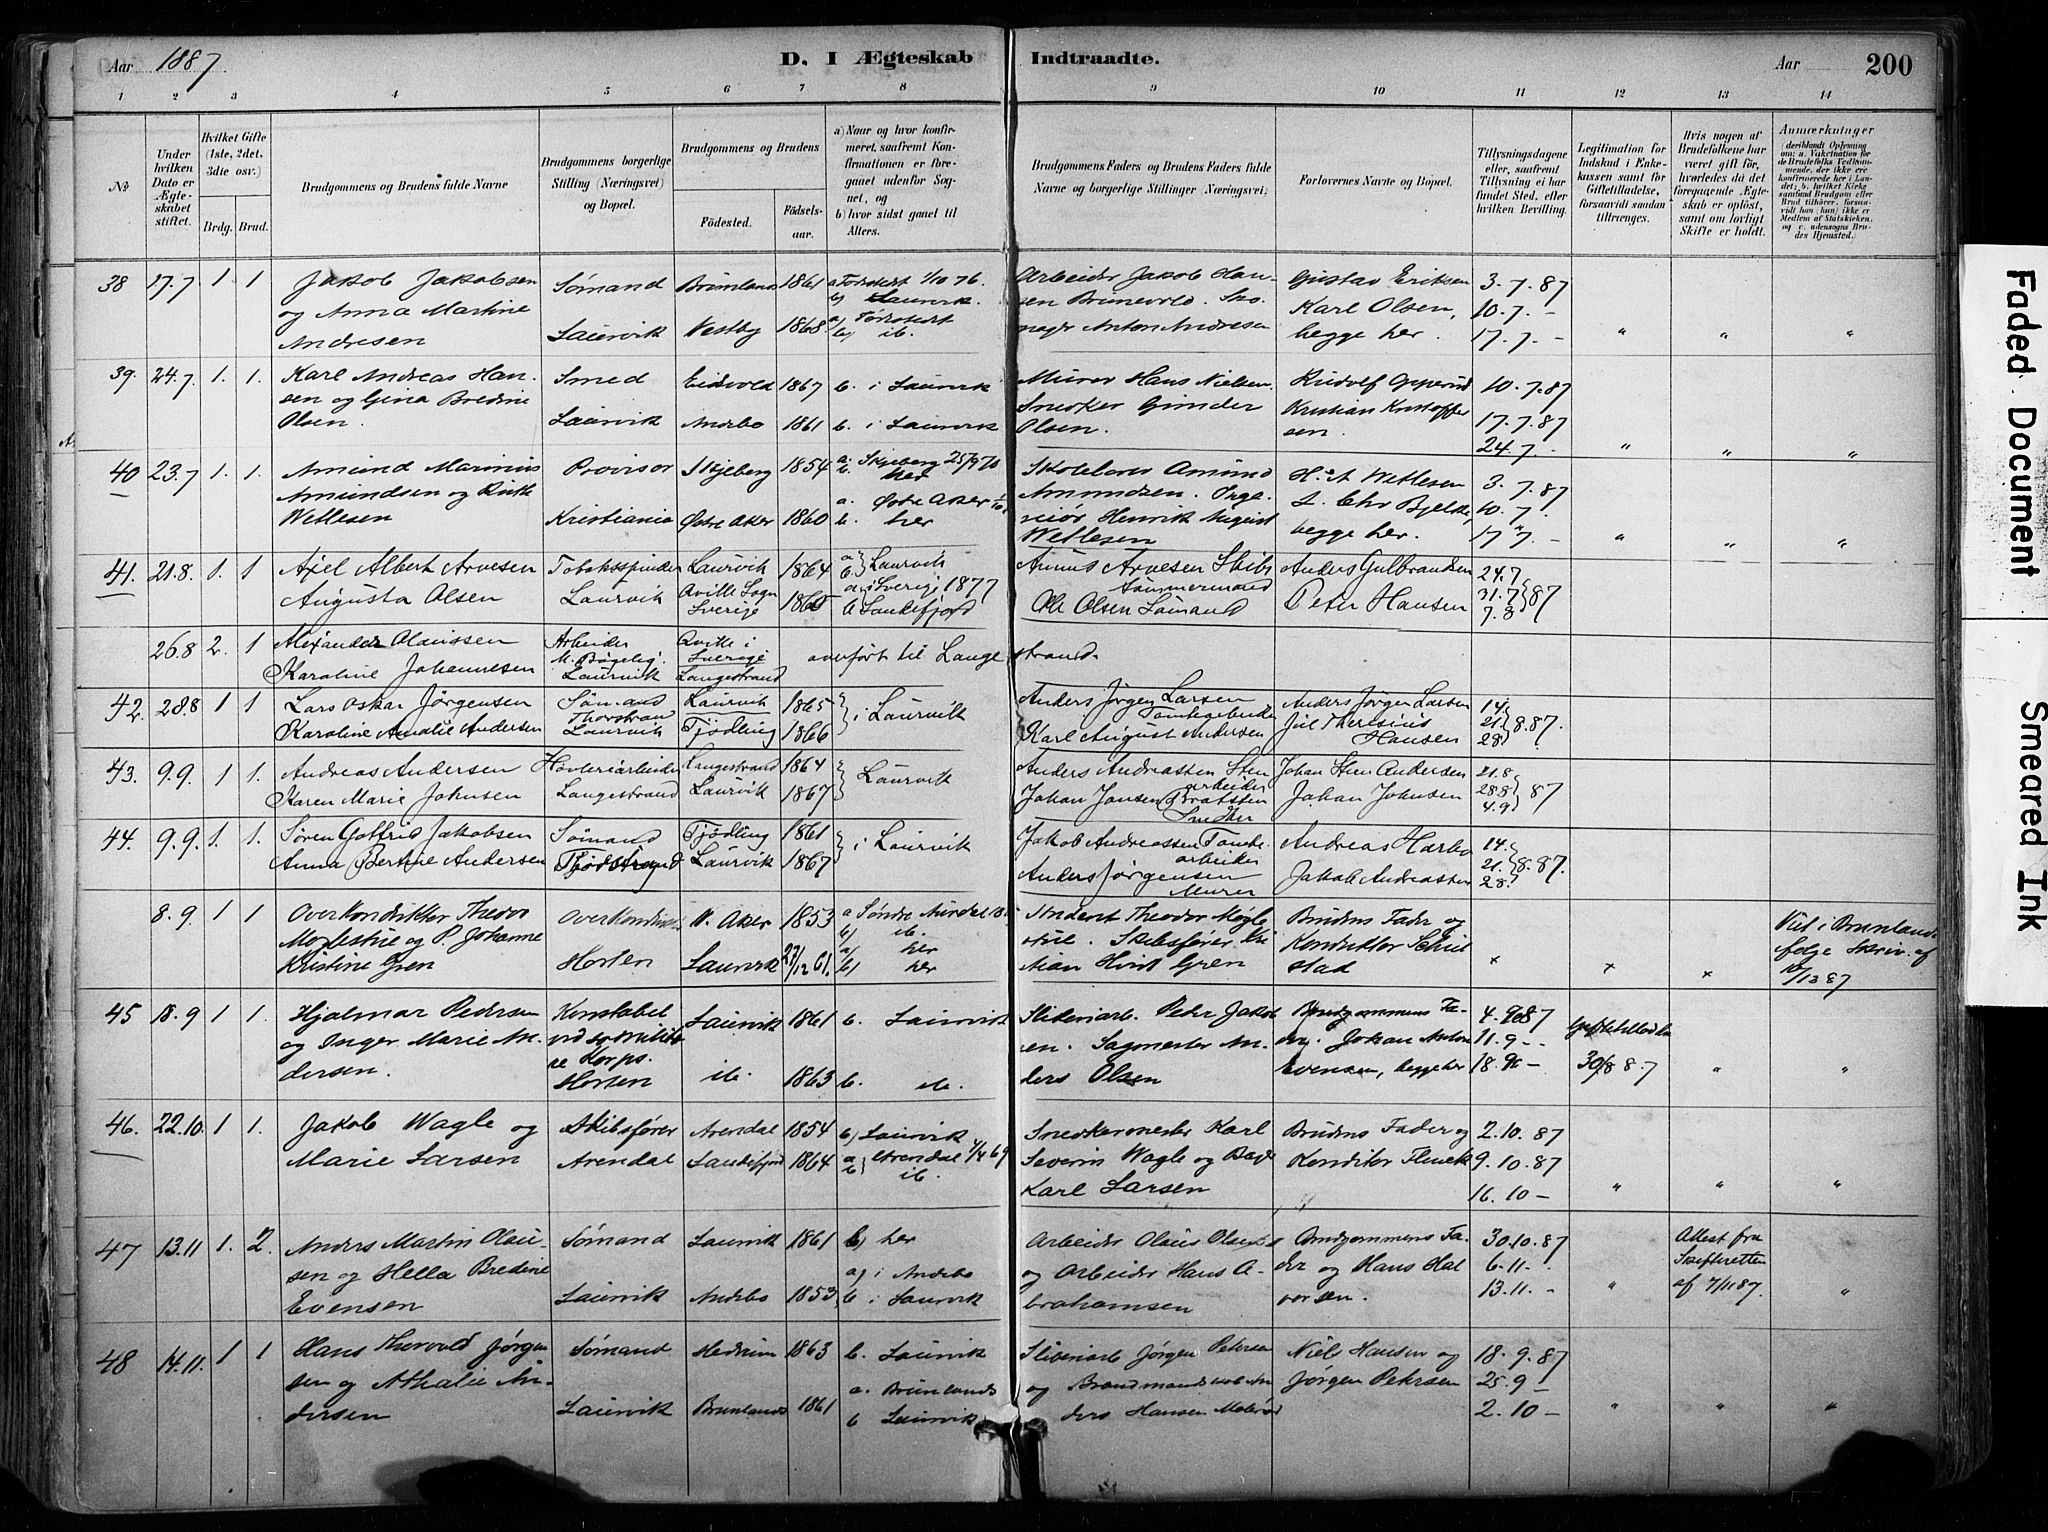 Aar 1887
D. I Ægteskab Indtraadte.
Aar 200
1 2 3 4 5 6 7 8 9 10 11 12 13 14
№
Under hvilken Dato er Ægteskabet stiftet.
Hvilket Gifte (1ste, 2det, 3die osv.)
Brdg. Brud.
Brudgommens og Brudens fulde Navne
Brudgommens borgerlige Stilling (Næringsvei) og Bopæl.
Brudgommens og Brudens
Fødested. Fødselsaar.
a) Naar og hvor konfirmeret, saafremt Konfirmationen er foregaaet udenfor Sognet, og
b) hvor sidst gaaet til Alters.
Brudgommens Faders og Brudens Faders fulde Navne og borgerlige Stillinger (Næringsvei)
Forlovernes Navne og Bopæl.
Tillysningsdagene eller, saafremt Tillysning ei har fundet Sted, efter hvilken Bevilling.
Legitimation for Indskud i Enkekassen samt for Giftetilladelse, forsaavidt saadan tiltrænges.
Hvis nogen af Brudefolkene har været gift før, hvorledes da det foregaaende Ægteskab er opløst, samt om lovligt Skifte er holdt.
Anmærkninger
38 17.7 1 1 Jakob Jakobsen Sømand Brunlanes 1861 a Fødested 1/10 76. Arbeider Jakob Han- Gustav Eriksen 3.7.87
og Anna Martine b) Laurvik. sen Karl Olsen, 10.7.-
Andresen Laurvik Vestby 1868 a) Fødested b) ib. Anton Andresen begge her. 17.7.- " " "
39. 24.7 1. 1. Karl Andreas Han- Smed Eidsvold 1867 b. i Laurvik Murer Hans Nielsen. Rudolf Opperud 10.7.87
sen og Gina Bredine Snedker Gunder Kristian Kristoffer- 17.7.87
Olsen. Laurvik Andebo 1861 b. i Laurvik Olsen. sen. 24.7.- " " "
40 23.7 1. 1. Amund Marinius Provisor Skjeberg 1854 a. Skjeberg 25/9 70 b. her Amund H. A. Wetlesen 3.7.87
Amundsen og Ruth a. Østre Aker Amundsen. Inge- L. Chr Bjelke, 10.7.
Wetlesen Kristiania Østre Aker 1860 b. her niør Henrik August Wetlesen begge her. 17.7.- " " "
41. 21.8. 1. 1 Axel Albert Arvesen Tobaksspinder Laurvik 1864 a b Laurvik Arvesen Skibs- tømmermand Anders Gulbrandsen 24.7
Augusta Olsen Laurvik Qville Sogn Sverige 1865 a i Sverige 1877 b Sandefjord Ole Olsen Sømand Peter Hansen 31.7 7.8 87
26.8 2. 1 Alexander Olaussen Arbeider Qville i Sverige overført til Lange strand.
Karoline Johannesen Laurvik Langestrand
42. 28.8 1 1 Lars Oskar Jørgensen Sømand Laurvik 1865 i Laurvik Anders Jørgen Larsen Anders Jørgen Larsen 14.
Karoline Amalie Andersen Laurvik Tjødling 1866 Karl August Andersen Jul Theresius Hansen 21. 28. 8.87.
43. 9.9. 1 1. Andreas Andersen Høvleriarbeider Langestrand 1864 Laurvik Anders Andreassen Sten- arbeider Johan Sten Andersen 21.8
Karen Marie Johnsen Langestrand Laurvik 1867 Johan Jansen Snedker Johan Johnsen 28.8 4.9 87
44. 9.9. 1. 1. Søren Gotfrid Jakobsen Sømand Tjødling 1861 i Laurvik Jakob Andreassen arbeider Andreas 14.
Anna Bertine Andersen Laurvik 1867 Anders Jørgensen Murer Jakob Andreassen 21. 28. 8.87.
8.9. 1 1 Overkonduktør Theodor Overkonduktør V. Aker 1853 a Søndre Aurdal b) ib. Theodor Møgle- Brudens Fader og Viet i Brunlanes
Møglestue og P. Johanne stue. Skibsfører Kri- Konduktør ifølge Skriv. af
Kristine Gren Horten Laurvik 27/12 61. a) her b) her stian Gren " " "
45 18.9 1 1. Hjalmar Pedersen Konstabel Laurvik 1861 b. Laurvik Sliberiarb. Peder Jakob- Brudgommens Fa- 4.9.87 Giftetilladelse
og Inger Marie An- sen. Sagmester An- der. Johan Anton 11.9-
dersen. Korps. Horten ib. 1863 b. ib. ders Olsen Evensen, begge her 18.9.- 30/8 87 " "
46. 22.10. 1 1. Jakob Wagle og Skibsfører Arendal 1854 b) Laurvik Snedkermester Karl Brudens Fader og 2.10.87
Marie Larsen Arendal Sandefjord 1864 Arendal 69 b ib. Severin Wagle og Konditor 9.10.87
Karl Larsen 16.10- " " "
47 13.11 1. 2. Anders Martin Olau- Sømand Laurvik 1861 b) her Arbeider Olaus Olsen Brudgommens Fa- 30.10.87 Attest fra
sen og Hella Bredine a) i Andebo og Arbeider Hans A- der og Hans Hal- 6.11.- Skifteretten
Evensen Laurvik Andebo 1853 b i Laurvik brahamsen vorsen. 13.11.- " af 7/11 87. "
48 14.11. 1 1 Hans Thorvald Jørgen- Sømand Hedrum 1863 b. Laurvik Sliberiarb Jørgen Petersen Niels Hansen og 18.9.87
sen og Athalie An- a. Brunlanes og Jørgen Petersen 25.9-
dersen Laurvik Brunlanes 1861 b Laurvik ders Hansen 2.10- " " "
Faded Document
Smeared Ink